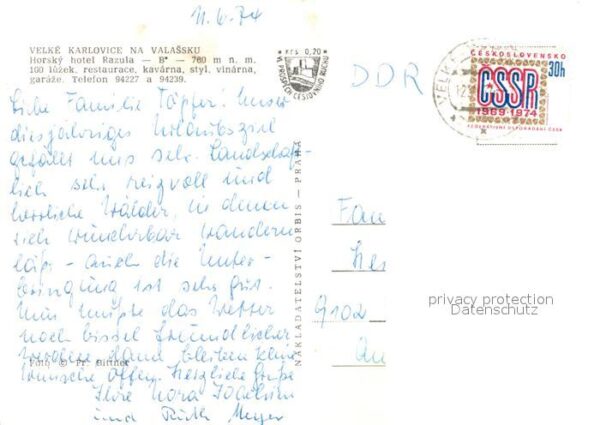 11.6.74
VELKÉ KARLOVICE NA VALAŠSKU
Horský hotel Razula — B* — 760 m n. m.
100 lůžek, restaurace, kavárna, styl. vinárna,
garáže. Telefon 94227 a 94239.
Kčs 0,70
VE PROSPĚCH CESTOVNÍHO RUCHU
DDR
VELKÉ
12.
ČESKOSLOVENSKO
30h
ČSSR
1969-1974
FEDERATIVNÍ USPOŘÁDÁNÍ ČSSR
Liebe Familie Töpfer! Unser
diesjähriges Urlaubsziel
gefällt uns sehr. Landschaft-
lich sehr reizvoll und
herrliche Wälder, in denen
sich wunderbar wandern
läßt - auch die Unter-
bringung ist sehr gut.
Nun müßte das Wetter
noch bissel freundlicher
werden, dann bleiben keine
Wünsche offen. Herzliche Grüße
Ihre Nora
und Ruth Meyer
Foto © Fr. Bittner
NAKLADATELSTVÍ ORBIS — PRAHA
Fam
9102
privacy protection
Datenschutz